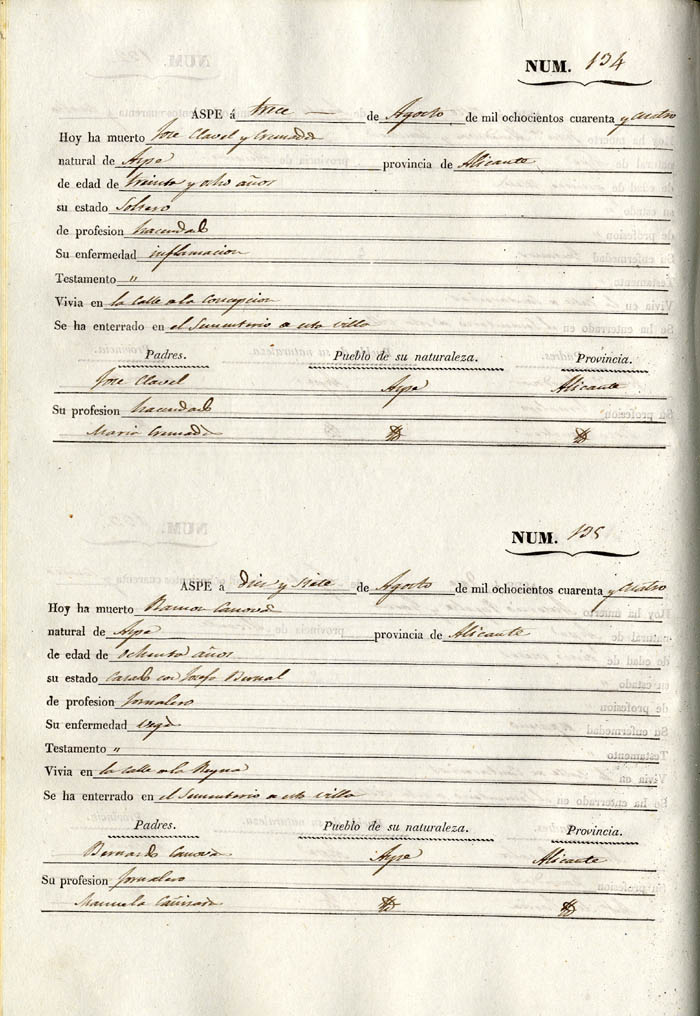 NUM. 134
ASPE á trece de Agosto de mil ochocientos cuarenta y cuatro
Hoy ha muerto Jose Clavel y Cremades
natural de Aspe provincia de Alicante
de edad de treinta y ocho años
su estado Soltero
de profesion hacendado
Su enfermedad inflamacion
Testamento "
Vivia en la Calle de la Concepcion
Se ha enterrado en el Sementerio de esta villa
Padres. Pueblo de su naturaleza. Provincia.
Jose Clavel Aspe Alicante
Su profesion hacendado
Maria Cremades
NUM. 135
ASPE á diez y siete de Agosto de mil ochocientos cuarenta y cuatro
Hoy ha muerto Ramon Canova
natural de Aspe provincia de Alicante
de edad de ochenta años
su estado Casado con Josefa Bernal
de profesion Jornalero
Su enfermedad
Testamento "
Vivia en la Calle de la Reyna
Se ha enterrado en el Sementerio de esta villa
Padres. Pueblo de su naturaleza. Provincia.
Bernardo Canova Aspe Alicante
Su profesion Jornalero
Manuela Cañizada